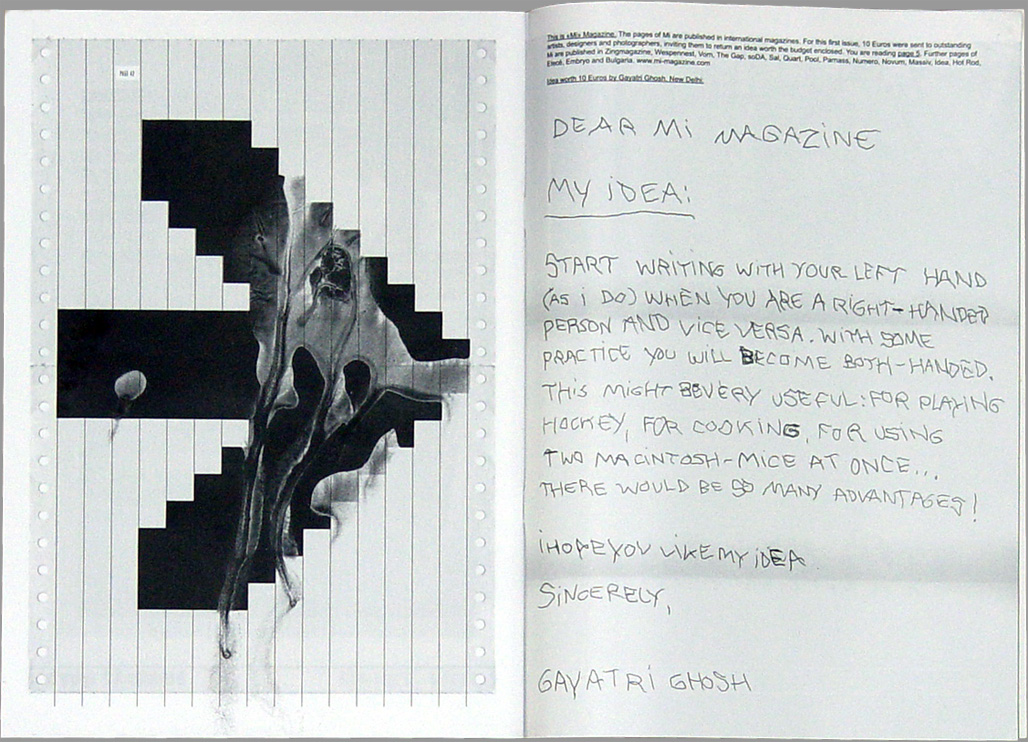 PAGE 42
This is »Mi« Magazine. The pages of Mi are published in international magazines. For this first issue, 10 Euros were sent to outstanding
artists, designers and photographers, inviting them to return an idea worth the budget enclosed. You are reading page 5. Further pages of
Mi are published in Zingmagazine, Wespennest, Vorn, The Gap, soDA, Sal, Quart, Pool, Parnass, Numero, Novum, Massiv, Idea, Hot Rod,
Etecé, Embryo and Bulgaria. www.mi-magazine.com
Idea worth 10 Euros by Gayatri Ghosh, New Delhi:
DEAR Mi MAGAZINE
MY iDEA:
START WRITING WITH YOUR LEFT HAND
(AS i DO) WHEN YOU ARE A RIGHT-HANDED
PERSON AND VICE VERSA. WITH SOME
PRACTICE YOU WILL BECOME BOTH-HANDED.
THIS MIGHT BE VERY USEFUL: FOR PLAYING
HOCKEY, FOR COOKING, FOR USING
TWO MACINTOSH-MICE AT ONCE...
THERE WOULD BE SO MANY ADVANTAGES!
i HOPE YOU LIKE MY iDEA
SiNCERELY,
GAYATRi GHOSH